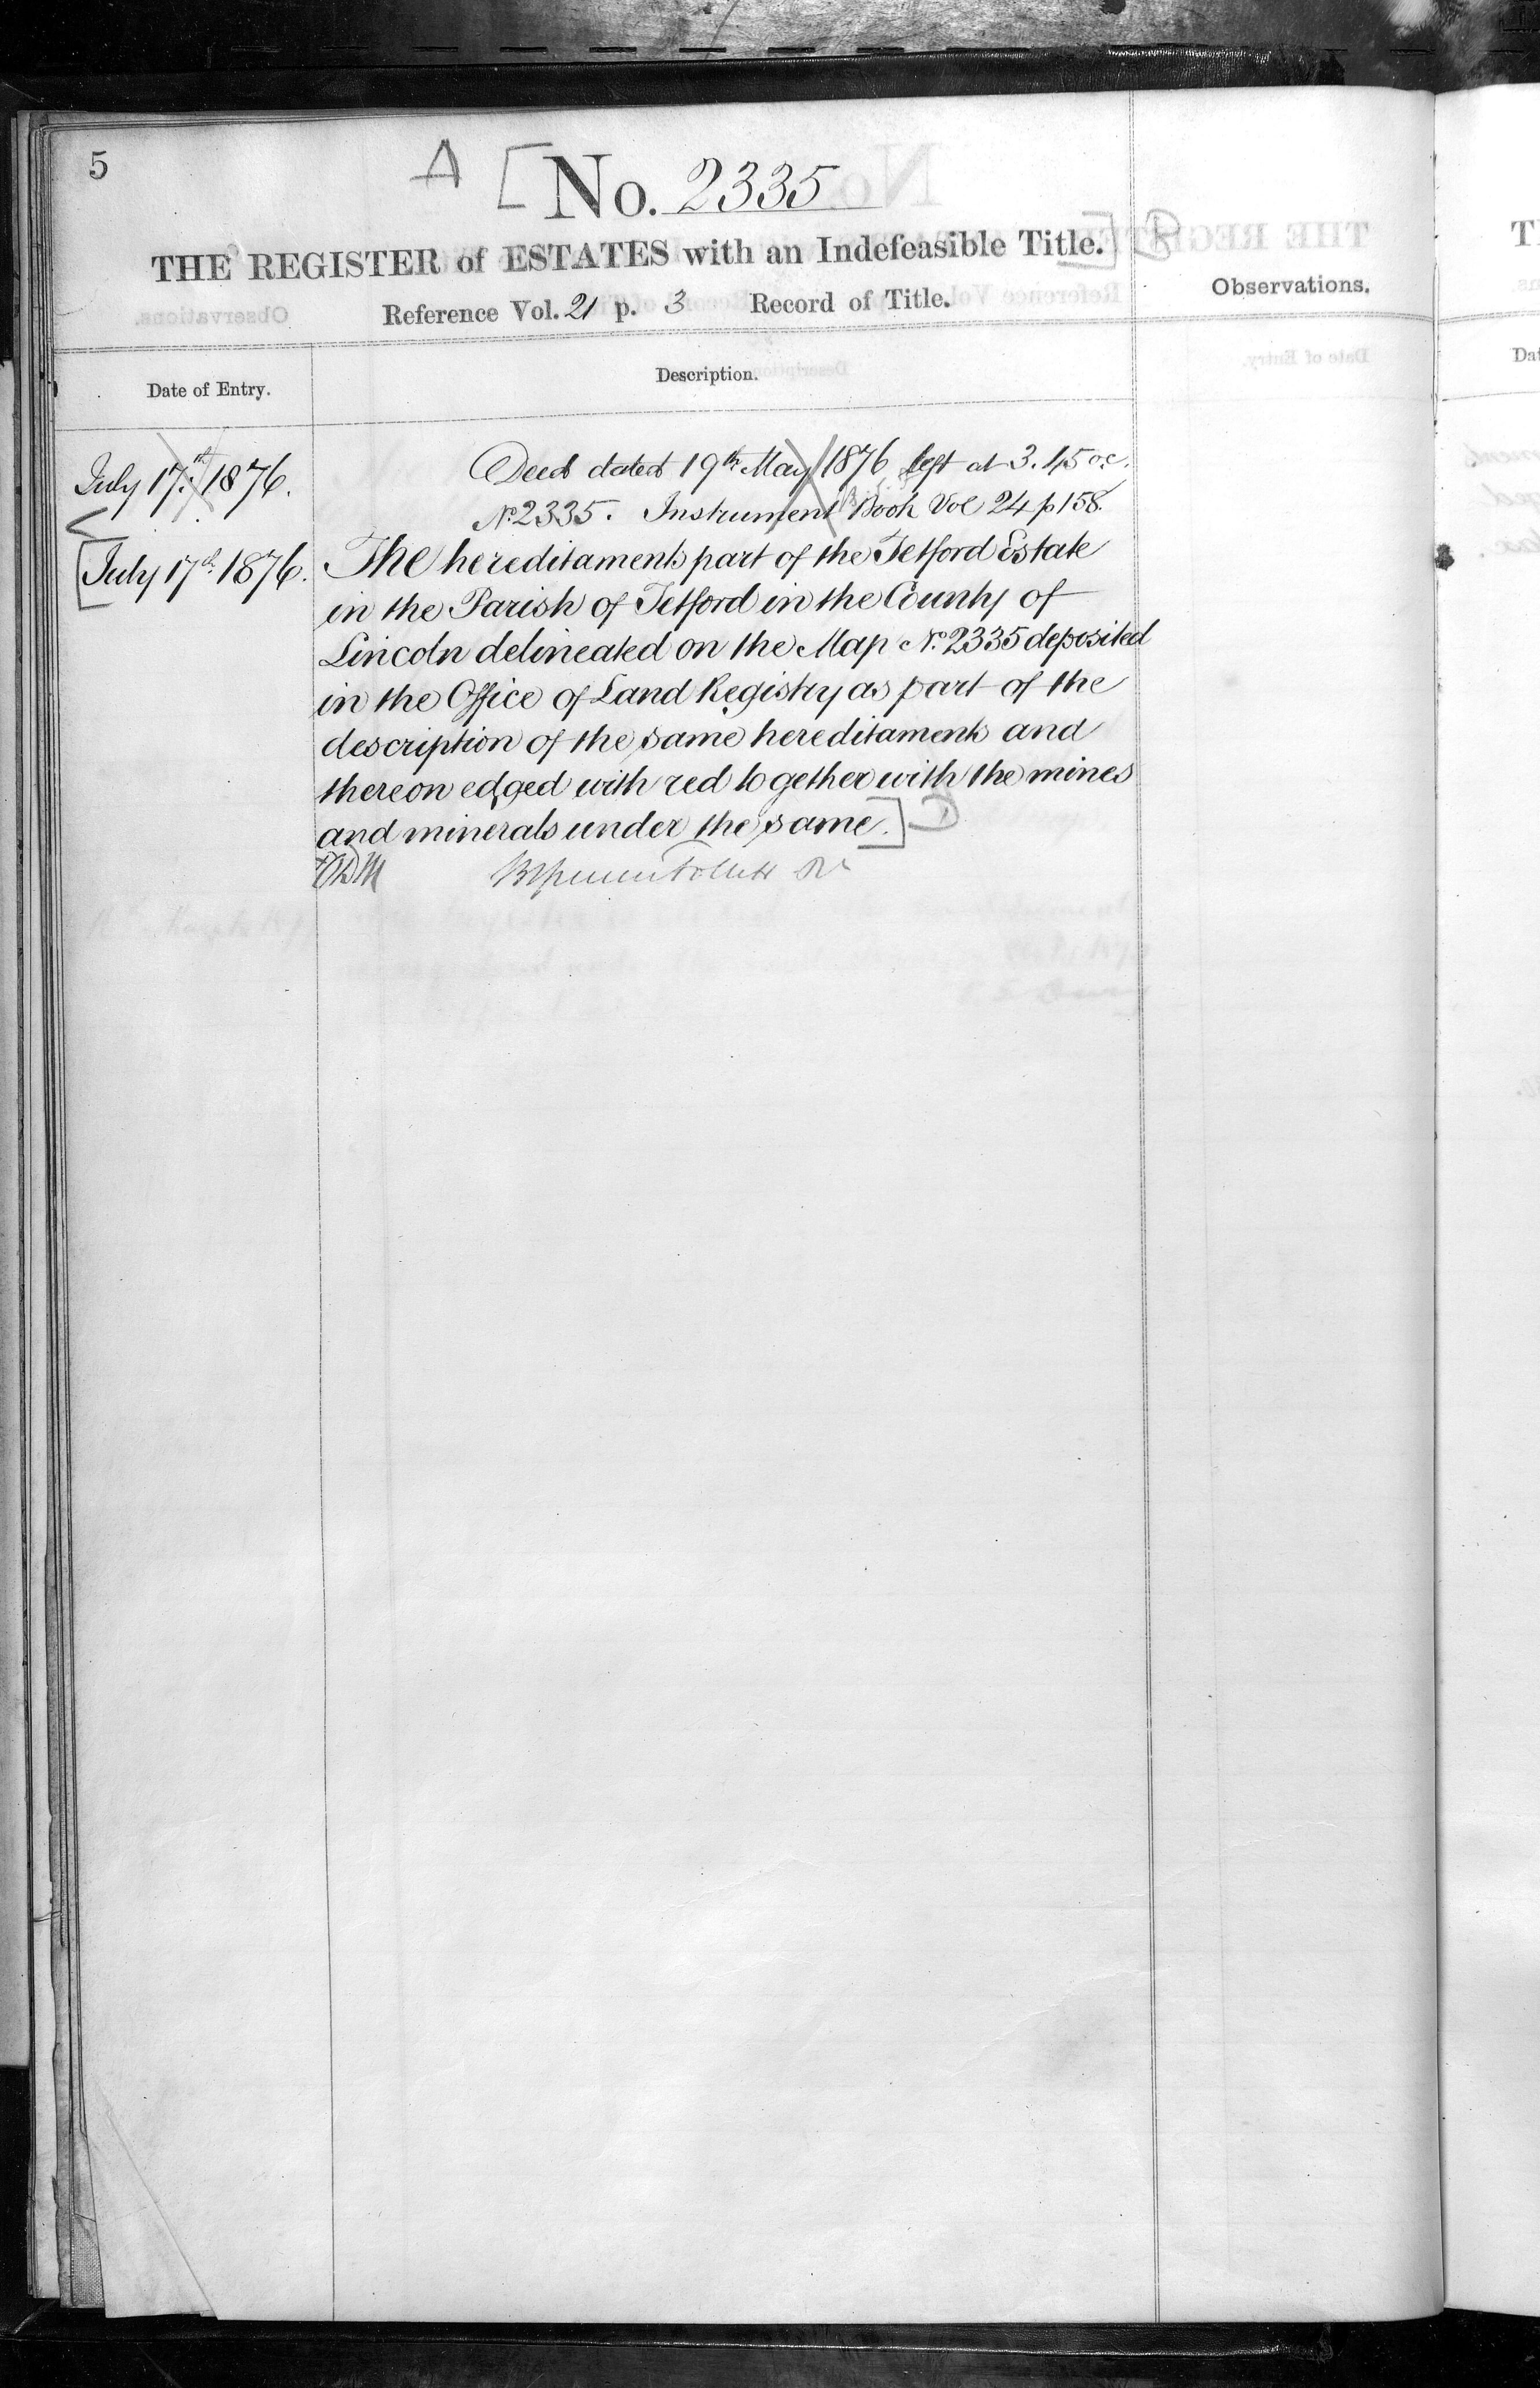 5
A [No. 2335
THE REGISTER of ESTATES with an Indefeasible Title.]
Reference Vol. 21 p. 3 Record of Title.
Observations.
Date of Entry.
Description.
July 17th 1876.
Deed dated 19th May 1876 left at 3.45 oc.
No 2335. Instrument Book Vol 24 p 158.
[July 17th 1876.
The hereditaments part of the Tetford Estate
in the Parish of Tetford in the County of
Lincoln delineated on the Map No 2335 deposited
in the Office of Land Registry as part of the
description of the same hereditaments and
thereon edged with red together with the mines
and minerals under the same.]